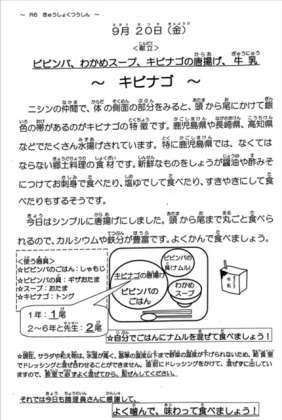 ～ R6 きゅうしょくつうしん ～
9月 20日(金)
<献立>
ビビンバ、わかめスープ、キビナゴの唐揚げ、牛乳
～ キビナゴ ～
ニシンの仲間で、体の側面の部分をみると、頭から尾にかけて銀
色の帯があるのがキビナゴの特徴です。鹿児島県や長崎県、高知県
などでたくさん水揚げされています。特に鹿児島県では、なくては
ならない郷土料理の食材です。新鮮なものをしょうが醤油や酢みそ
につけてお刺身で食べたり、塩ゆでして食べたり、すきやきにして食べ
たりもするそうです。
今日はシンプルに唐揚げにしました。頭から尾まで丸ごと食べら
れるので、カルシウムや鉄分が豊富です。よくかんで食べましょう。
<使う器具>
☆ビビンバのごはん：しゃもじ
☆ビビンバの具：ギザおたま
☆スープ：おたま
☆キビナゴ：トング
1年：1尾
2～6年と先生：2尾
キビナゴの唐揚げ
ビビンバの
具(ナムル)
ビビンバの
ごはん
わかめ
スープ
☆自分でごはんにナムルを混ぜて食べましょう！
それでは今日も調理員さんに感謝して、
よく噛んで、味わって食べましょう！